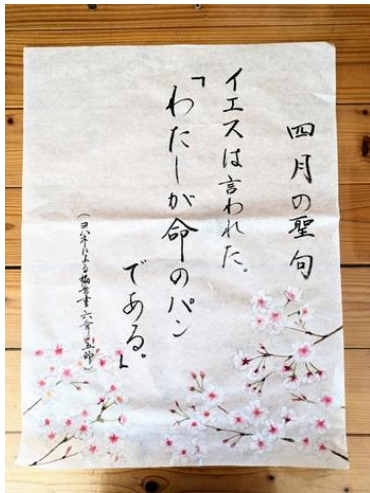 四月の聖句
イエスは言われた。
「わたしが命のパン
である。」
(ヨハネによる福音書六章三五節)